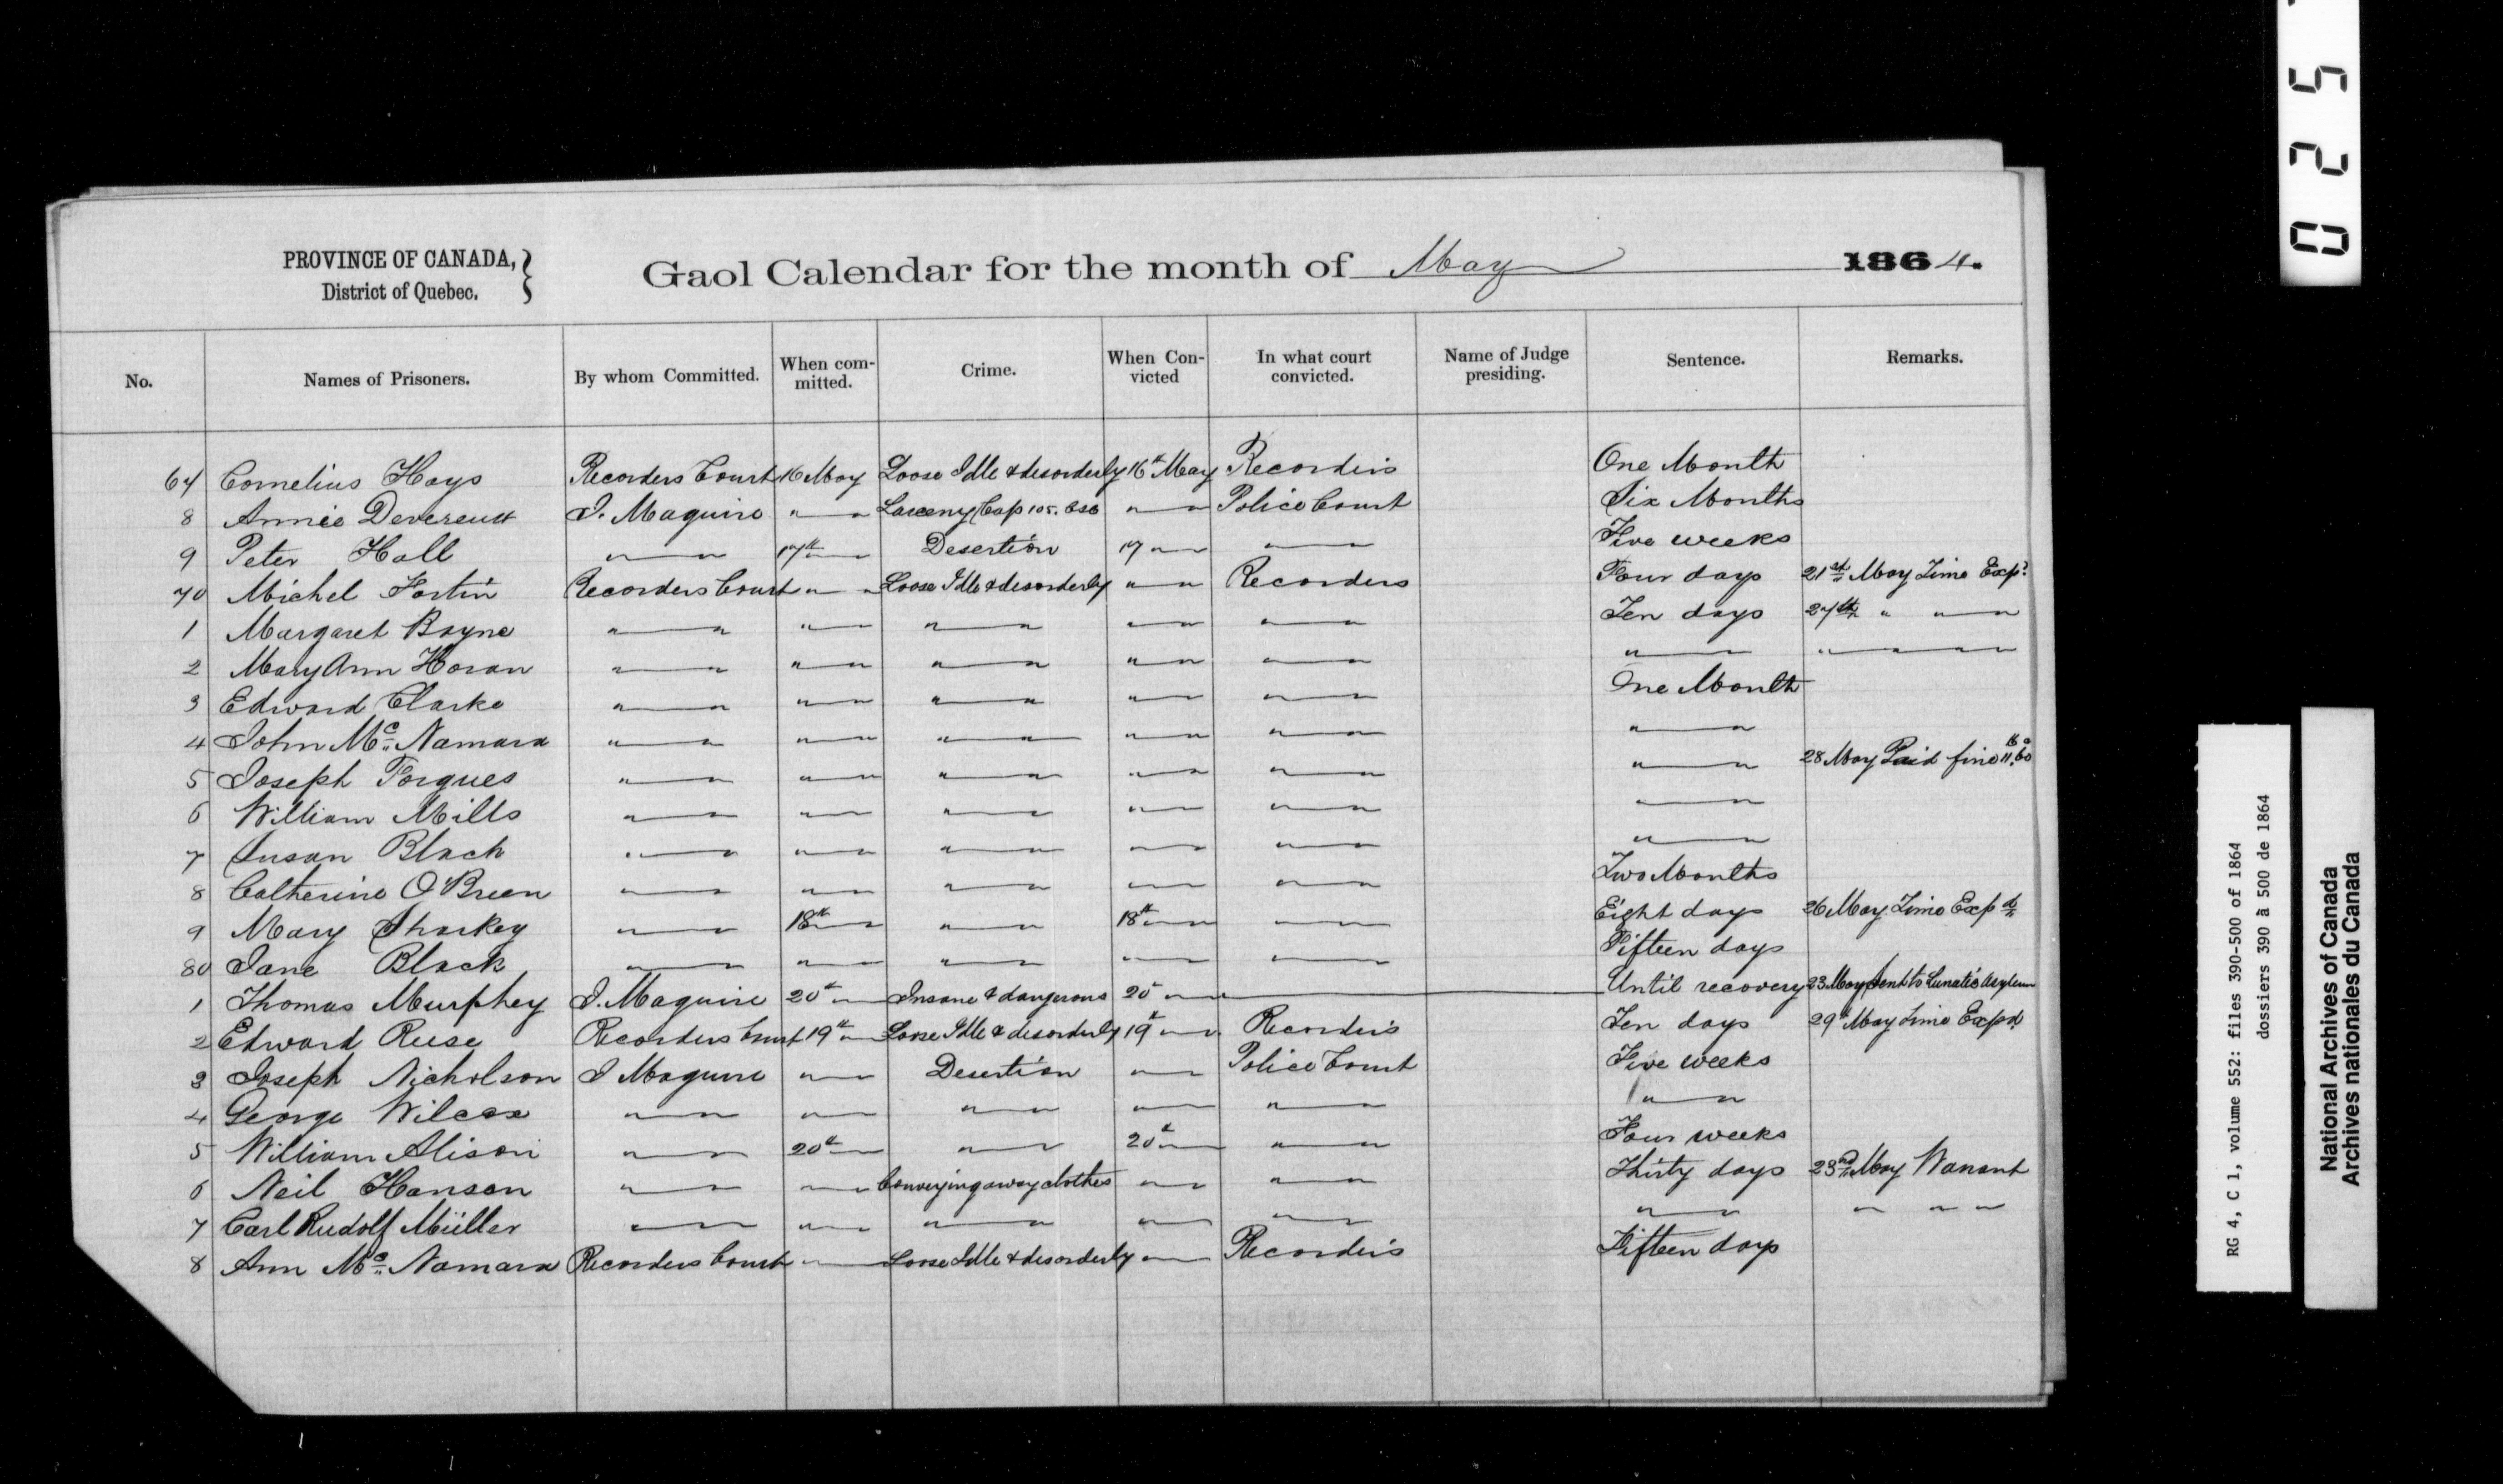 PROVINCE OF CANADA,
District of Quebec.
Gaol Calendar for the month of May 1864.
No. Names of Prisoners. By whom Committed. When committed. Crime. When Convicted In what court convicted. Name of Judge presiding. Sentence. Remarks.
67 Cornelius Hays Recorders Court 16 May Loose Idle & desorderly 16th May Recorder's One Month
8 Annie Devereux J. Maguire " " Larceny Cap 105. " " Police Court Six Months
9 Peter Hall " " 17th " Desertion 17 " " " " Five weeks
70 Michel Fortin Recorders Court " " Loose Idle & desorderly " " Recorders Four days 21st May Time Expd
1 Margaret Boyne " " " " " " " " " " Ten days 27th " " "
2 Mary Ann Horan " " " " " " " " " " " " " " " "
3 Edward Clarke " " " " " " " " " " One Month
4 John Mc Namara " " " " " " " " " " " "
5 Joseph Forgues " " " " " " " " " " " " 28 May Paid fine
6 William Mills " " " " " " " " " " " "
7 Susan Black " " " " " " " " " " " "
8 Catherine O'Breen " " " " " " " " " " Two Months
9 Mary Sharkey " " 18th " " " 18th " " " Eight days 26 May Time Expd
80 Jane Black " " " " " " " " " " Fifteen days
1 Thomas Murphey J. Maguire 20th " Insane & dangerous 20 " Until recovery 23 May Sent to Lunatic Asylum
2 Edward Reese Recorders Court 19th " Loose Idle & desorderly 19th " " Recorder's Ten days 29th May Time Expd
3 Joseph Nicholson J Maguire " " Desertion " " Police Court Five weeks
4 George Wilcox " " " " " " " " " " " "
5 William Alison " " 20th " " " 20th " " " Four weeks
6 Neil Hanson " " " " Conveying away clothes " " " " Thirty days 23rd May Warrant
7 Carl Rudolf Müller " " " " " " " " " " " " " " "
8 Ann Mc Namara Recorders Court " " Loose Idle & desorderly " " Recorder's Fifteen days
025
RG 4, C 1, volume 552: files 390-500 of 1864
dossiers 390 à 500 de 1864
National Archives of Canada
Archives nationales du Canada